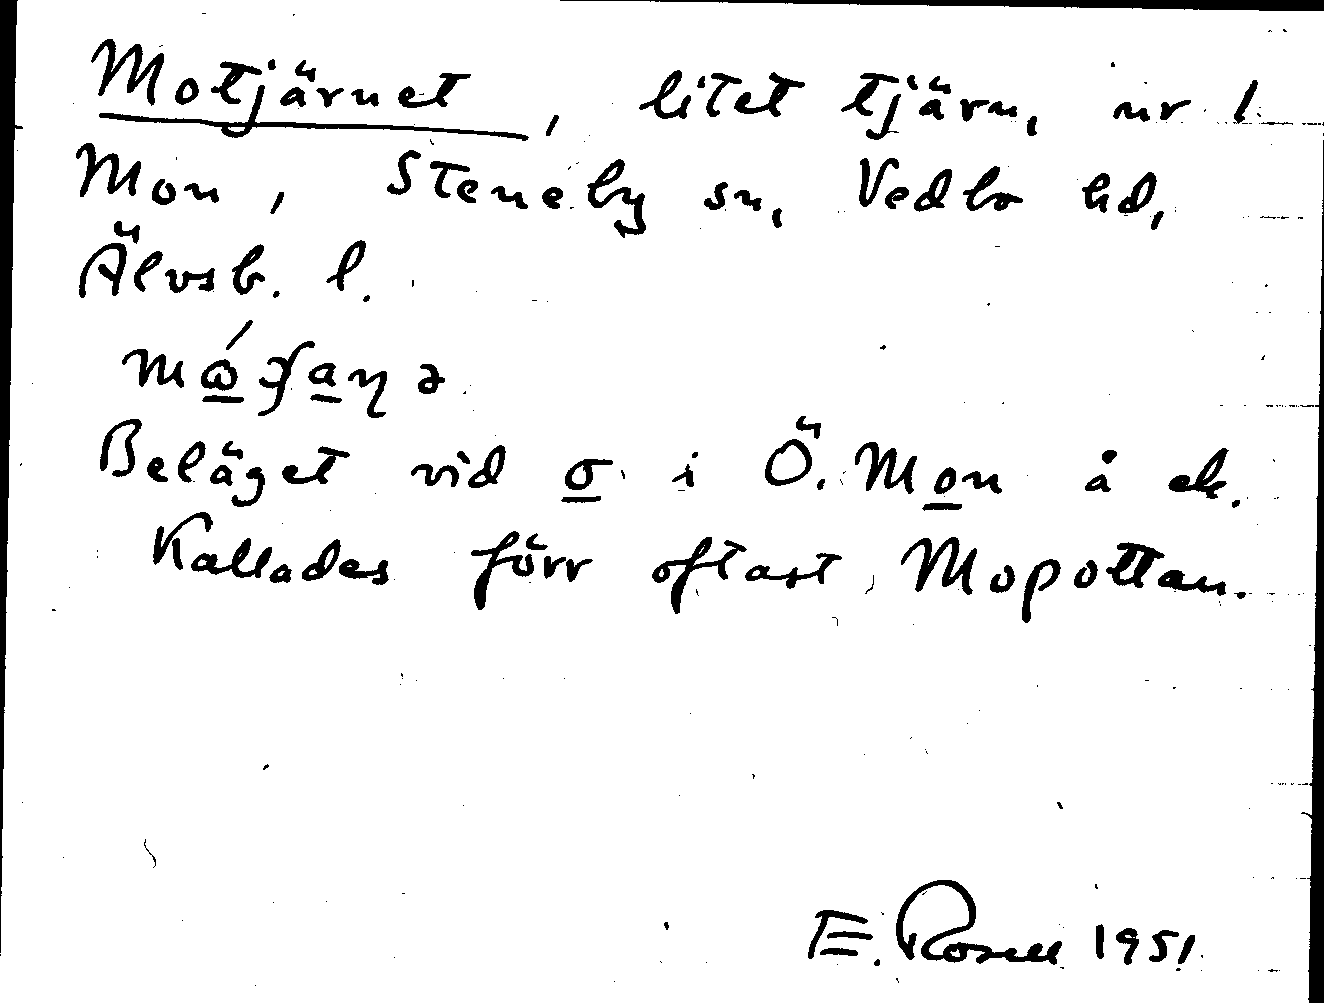 Motjärnet, litet tjärn, nr 1
Mon, Steneby sn, Vedbo hd,
Älvsb. l.
Beläget vid o i Ö. Mon å ek.
Kallades förr oftast Mopottan.
E. Rosell 1951